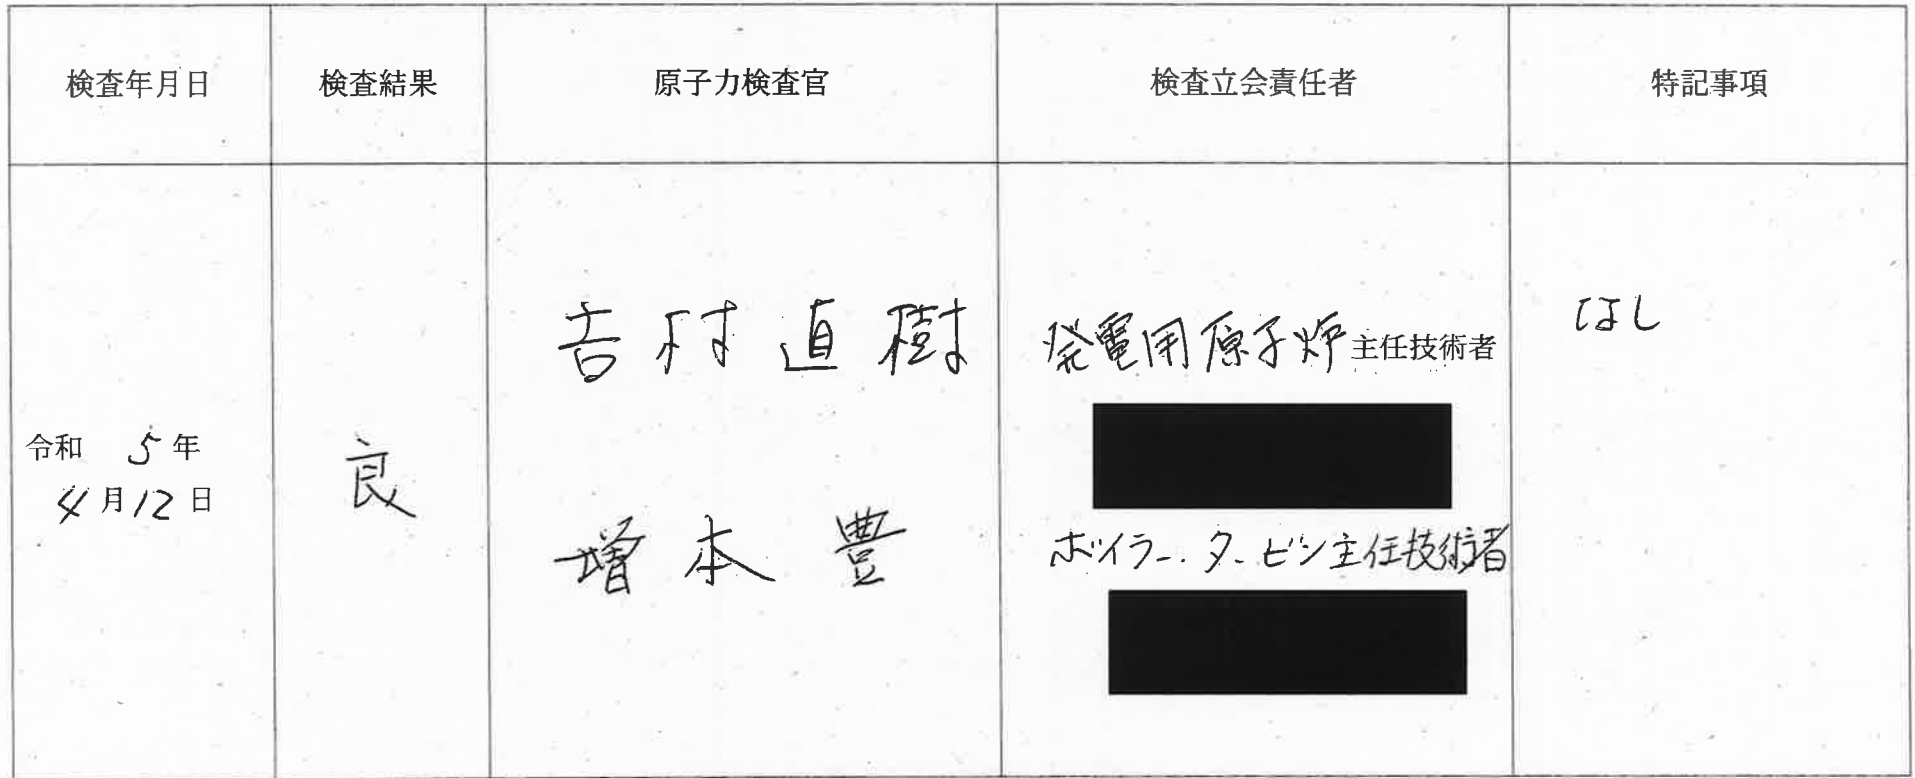 検査年月日 検査結果 原子力検査官 検査立会責任者 特記事項
令和 5年
4月12日
良
吉村直樹
増本豊
発電用原子炉主任技術者
ボイラー.タービン主任技術者
なし